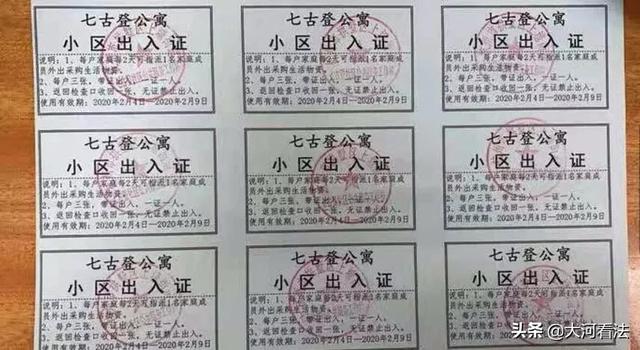 七古登公寓
小区出入证
说明：1、每户家庭每2天可指派1名家庭成
员外出采购生活物资。
2、每户三张，带证出入，一证一人。
3、返回检查口收回一张，无证禁止出入。
使用有效期：2020年2月4日—2020年2月9日
七古登公寓
小区出入证
说明：1、每户家庭每2天可指派1名家庭成
员外出采购生活物资。
2、每户三张，带证出入，一证一人。
3、返回检查口收回一张，无证禁止出入。
使用有效期：2020年2月4日—2020年2月9日
七古登公寓
小区出入证
说明：1、每户家庭每2天可指派1名家庭成
员外出采购生活物资。
2、每户三张，带证出入，一证一人。
3、返回检查口收回一张，无证禁止出入。
使用有效期：2020年2月4日—2020年2月9日
七古登公寓
小区出入证
说明：1、每户家庭每2天可指派1名家庭成
员外出采购生活物资。
2、每户三张，带证出入，一证一人。
3、返回检查口收回一张，无证禁止出入。
使用有效期：2020年2月4日—2020年2月9日
七古登公寓
小区出入证
说明：1、每户家庭每2天可指派1名家庭成
员外出采购生活物资。
2、每户三张，带证出入，一证一人。
3、返回检查口收回一张，无证禁止出入。
使用有效期：2020年2月4日—2020年2月9日
七古登公寓
小区出入证
说明：1、每户家庭每2天可指派1名家庭成
员外出采购生活物资。
2、每户三张，带证出入，一证一人。
3、返回检查口收回一张，无证禁止出入。
使用有效期：2020年2月4日—2020年2月9日
七古登公寓
小区出入证
说明：1、每户家庭每2天可指派1名家庭成
员外出采购生活物资。
2、每户三张，带证出入，一证一人。
3、返回检查口收回一张，无证禁止出入。
使用有效期：2020年2月4日—2020年2月9日
七古登公寓
小区出入证
说明：1、每户家庭每2天可指派1名家庭成
员外出采购生活物资。
2、每户三张，带证出入，一证一人。
3、返回检查口收回一张，无证禁止出入。
使用有效期：2020年2月4日—2020年2月9日
七古登公寓
小区出入证
说明：1、每户家庭每2天可指派1名家庭成
员外出采购生活物资。
2、每户三张，带证出入，一证一人。
3、返回检查口收回一张
使用有效期：2020年2月
头条 @大河看法